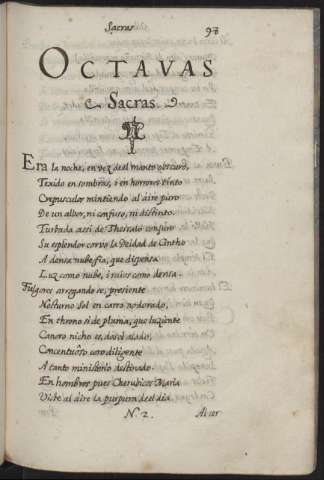 Sacras 97
OCTAVAS
Sacras.
Era la noche, en vez del manto obscuro,
Texido en sombras, i en horrores tinto
Crepusculos mintiendo al aire puro
De un albor, ni confuso, ni distinto.
Turbada assi de Thessalo conjuro
Su esplendor corvo la Deidad de Cintho
A densa nube fia, que dispensa
Luz como nube, i raios como densa.
Fulgores arrogando se, presiente
Nocturno Sol en carro no dorado,
En throno si de pluma, que luziente
Canoro nicho es, dosel alado,
Concentuoso coro diligente
A tanto ministerio destinado
En hombros pues Cherubicos Maria
Viste al aire la purpura del dia
N 2. Al cer